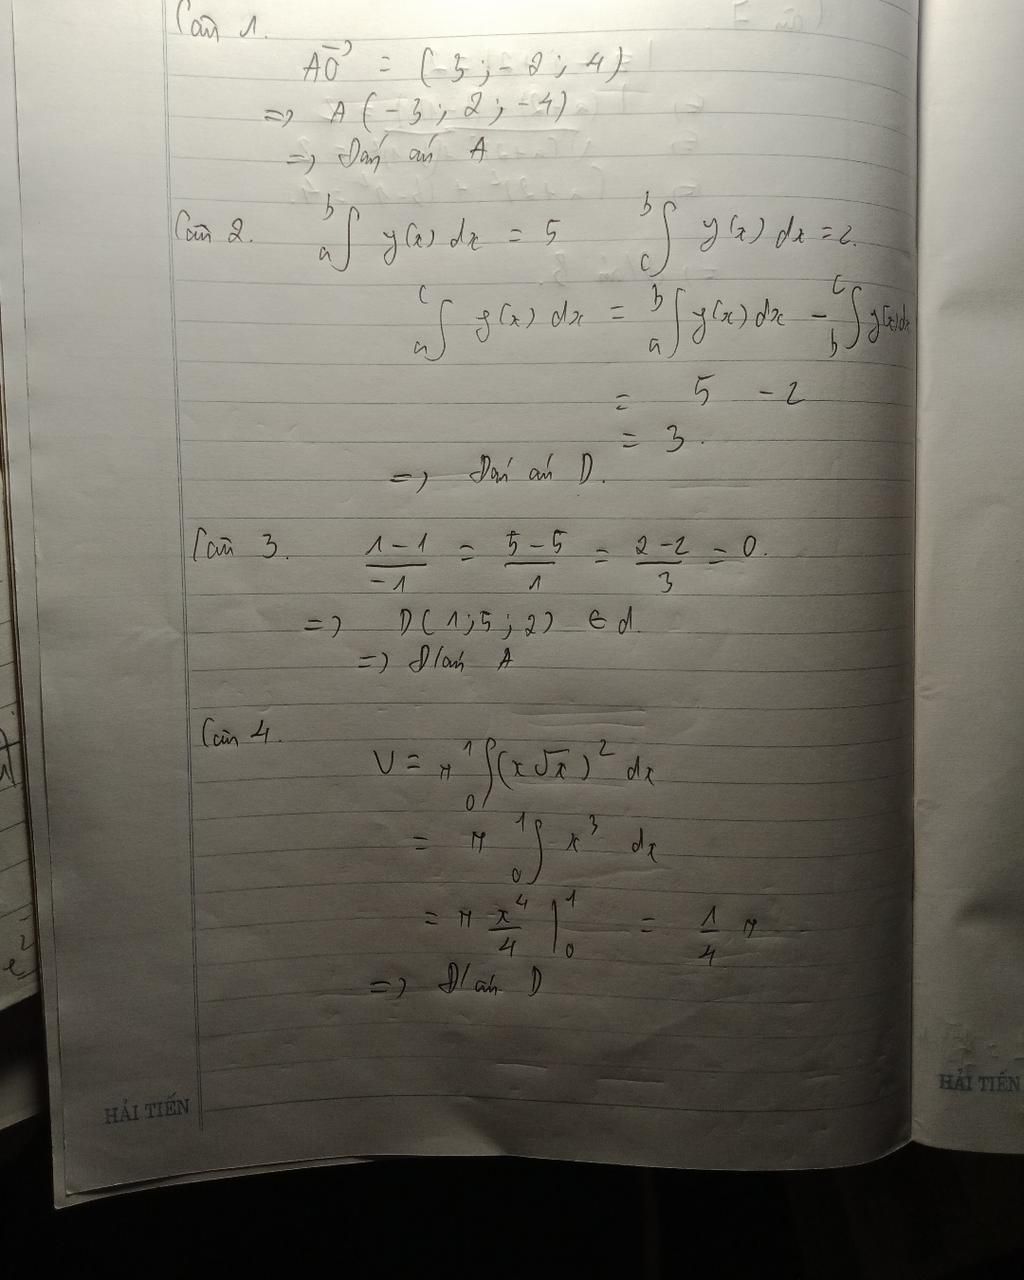 Câu 1.
AO = (-3 ; -2 ; 4)
=> A (-3 ; 2 ; -4)
=> Đáp án A
Câu 2. a∫b y(x) dx = 5 c∫b y(x) dx = 2.
a∫c y(x) dx = a∫b y(x) dx - b∫c y(x) dx
= 5 - 2
= 3.
=> Đáp án D.
Câu 3. (1-1)/(-1) = (5-5)/1 = (2-2)/3 = 0.
=> D(1;5;2) ∈ d.
=> Đ/án A
Câu 4.
V = π 0∫1 (x√x)² dx
= π 0∫1 x³ dx
= π x⁴/4 |₀¹ = 1/4 π
=> Đ/án D
HẢI TIẾN
HẢI TIẾN